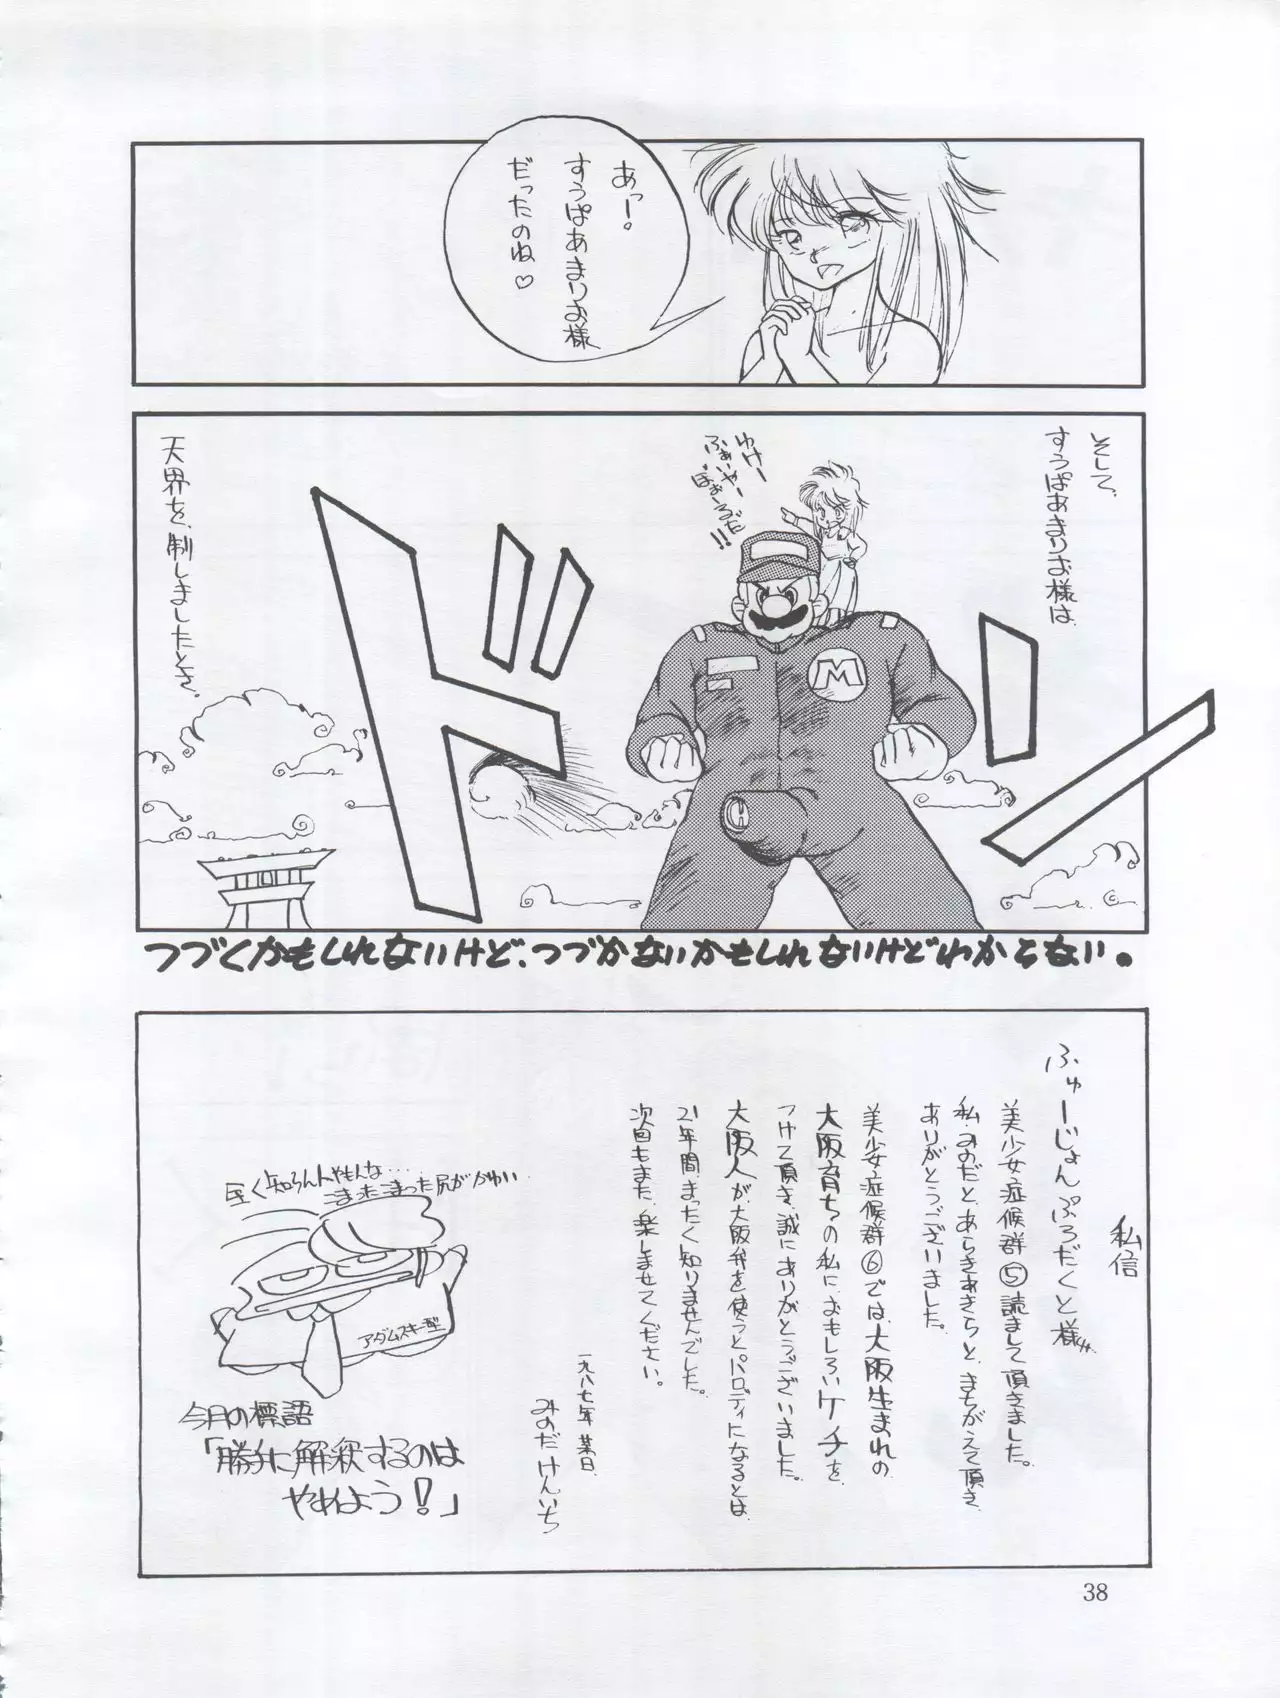 あっ!。
すうぱあまりお様
だったのね♡
そして、
すうぱあまりお様は
ゆけー
ふぁいやー
ぼぉーるだ!!
M
ドーン
天界を、制しましたとさ。
つづくかもしれないけど、つづかないかもしれないけどわからない。
私信
ふゅーじょんぷろだくと様
美少女症候群⑤読まして頂きました。
私、みのだと、あらきあきらと、まちがえて頂き、
ありがとうございました。
美少女症候群⑥では、大阪生まれの
大阪育ちの私に、おもしろいケチを、
つけて頂き、誠にありがとうございました。
大阪人が、大阪弁を使うと、パロディになるとは、
21年間、まったく知りませんでした。
次回もまた、楽しませてください。
一九八七年 某日
みのだけんいち
こまったこまった尻がかゆい
アダムスキー型
今月の標語
「勝手に解釈するのは
やめよう!」
38